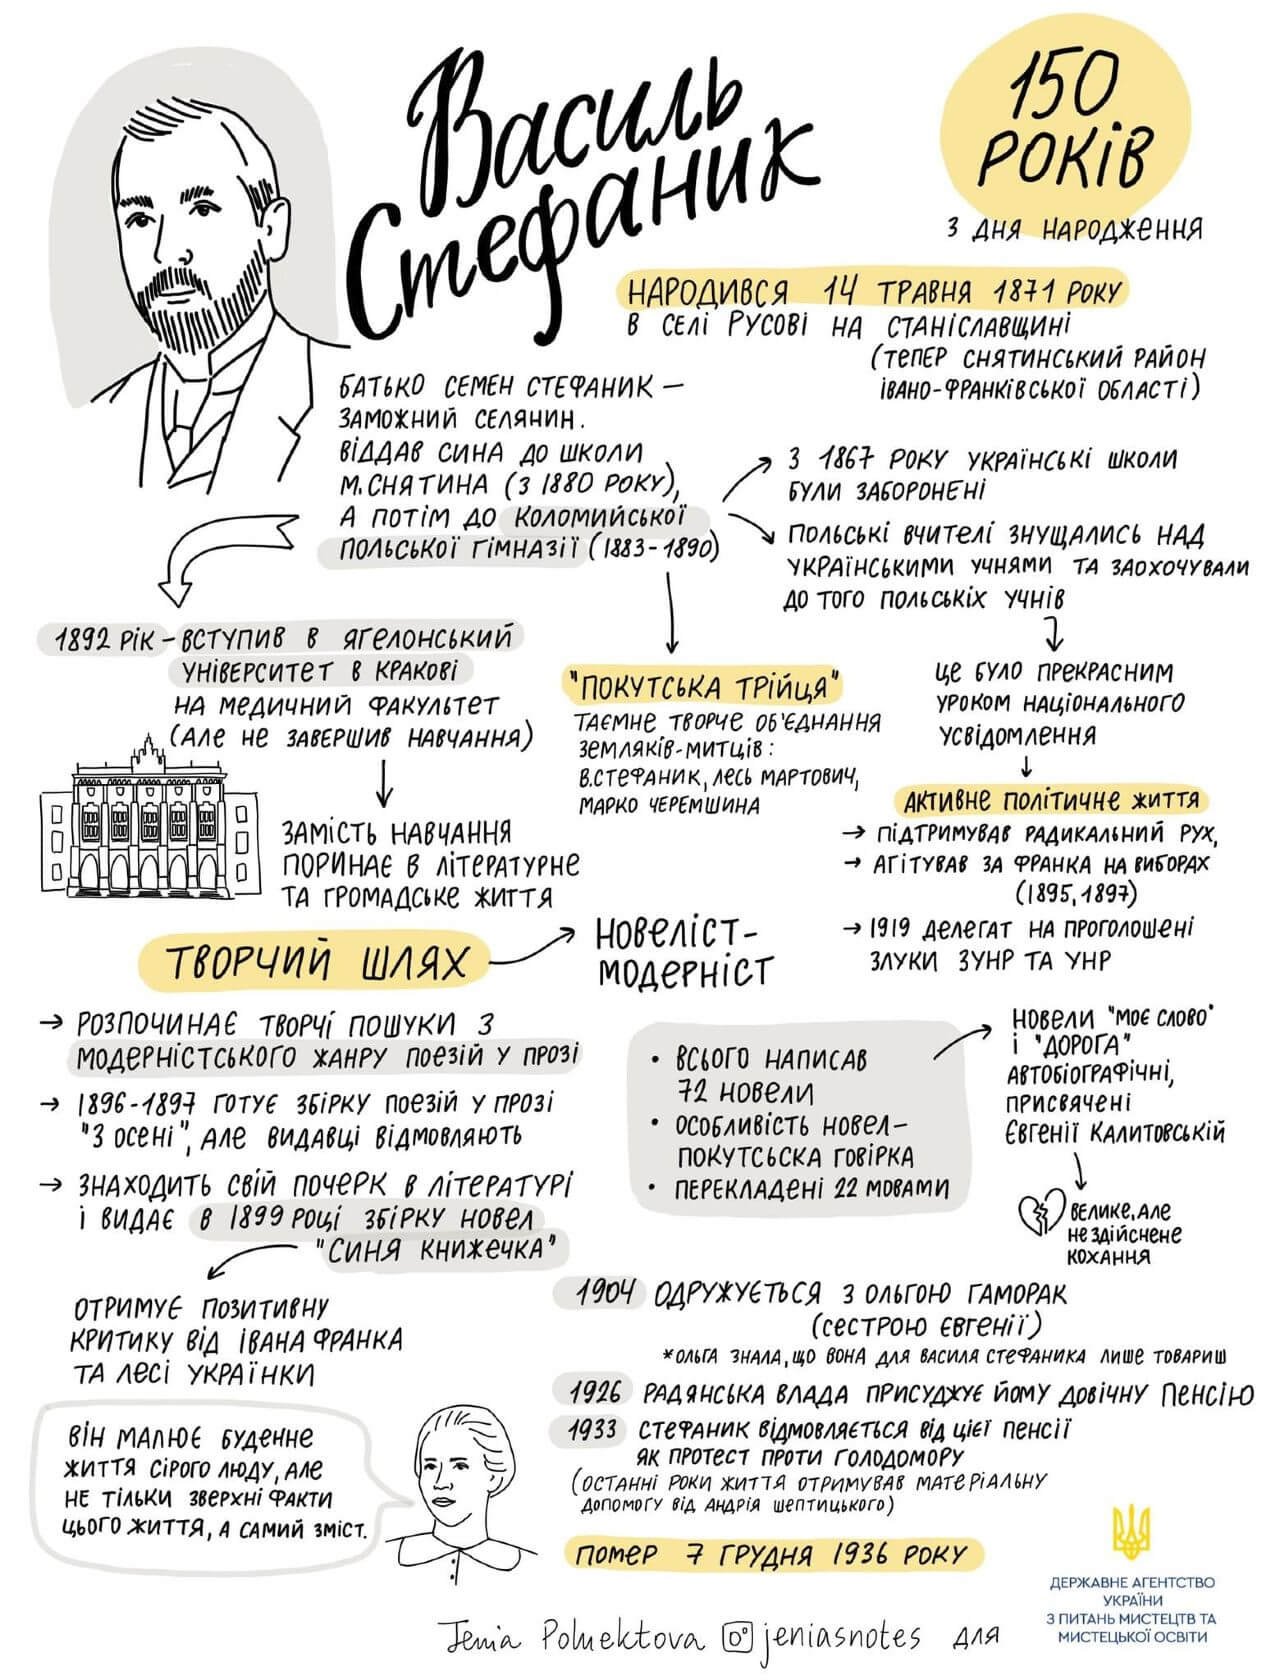 Василь
Стефаник
150
РОКІВ
З ДНЯ НАРОДЖЕННЯ
НАРОДИВСЯ 14 ТРАВНЯ 1871 РОКУ
В СЕЛІ РУСОВІ НА СТАНІСЛАВЩИНІ
(ТЕПЕР СНЯТИНСЬКИЙ РАЙОН
ІВАНО-ФРАНКІВСЬКОЇ ОБЛАСТІ)
БАТЬКО СЕМЕН СТЕФАНИК –
ЗАМОЖНИЙ СЕЛЯНИН.
ВІДДАВ СИНА ДО ШКОЛИ
М.СНЯТИНА (З 1880 РОКУ),
А ПОТІМ ДО КОЛОМИЙСЬКОЇ
ПОЛЬСЬКОЇ ГІМНАЗІЇ (1883-1890)
З 1867 РОКУ УКРАЇНСЬКІ ШКОЛИ
БУЛИ ЗАБОРОНЕНІ
ПОЛЬСЬКІ ВЧИТЕЛІ ЗНУЩАЛИСЬ НАД
УКРАЇНСЬКИМИ УЧНЯМИ ТА ЗАОХОЧУВАЛИ
ДО ТОГО ПОЛЬСЬКІХ УЧНІВ
ЦЕ БУЛО ПРЕКРАСНИМ
УРОКОМ НАЦІОНАЛЬНОГО
УСВІДОМЛЕННЯ
АКТИВНЕ ПОЛІТИЧНЕ ЖИТТЯ
→ ПІДТРИМУВАВ РАДИКАЛЬНИЙ РУХ,
→ АГІТУВАВ ЗА ФРАНКА НА ВИБОРАХ
(1895, 1897)
→ 1919 ДЕЛЕГАТ НА ПРОГОЛОШЕНІ
ЗЛУКИ ЗУНР ТА УНР
"ПОКУТСЬКА ТРІЙЦЯ"
ТАЄМНЕ ТВОРЧЕ ОБ'ЄДНАННЯ
ЗЕМЛЯКІВ-МИТЦІВ:
В.СТЕФАНИК, ЛЕСЬ МАРТОВИЧ,
МАРКО ЧЕРЕМШИНА
1892 РІК – ВСТУПИВ В ЯГЕЛОНСЬКИЙ
УНІВЕРСИТЕТ В КРАКОВІ
НА МЕДИЧНИЙ ФАКУЛЬТЕТ
(АЛЕ НЕ ЗАВЕРШИВ НАВЧАННЯ)
ЗАМІСТЬ НАВЧАННЯ
ПОРИНАЄ В ЛІТЕРАТУРНЕ
ТА ГРОМАДСЬКЕ ЖИТТЯ
ТВОРЧИЙ ШЛЯХ
НОВЕЛІСТ-
МОДЕРНІСТ
→ РОЗПОЧИНАЄ ТВОРЧІ ПОШУКИ З
МОДЕРНІСТСЬКОГО ЖАНРУ ПОЕЗІЙ У ПРОЗІ
→ 1896-1897 ГОТУЄ ЗБІРКУ ПОЕЗІЙ У ПРОЗІ
"З ОСЕНІ", АЛЕ ВИДАВЦІ ВІДМОВЛЯЮТЬ
→ ЗНАХОДИТЬ СВІЙ ПОЧЕРК В ЛІТЕРАТУРІ
І ВИДАЄ В 1899 РОЦІ ЗБІРКУ НОВЕЛ
"СИНЯ КНИЖЕЧКА"
ОТРИМУЄ ПОЗИТИВНУ
КРИТИКУ ВІД ІВАНА ФРАНКА
ТА ЛЕСІ УКРАЇНКИ
ВІН МАЛЮЄ БУДЕННЕ
ЖИТТЯ СІРОГО ЛЮДУ, АЛЕ
НЕ ТІЛЬКИ ЗВЕРХНІ ФАКТИ
ЦЬОГО ЖИТТЯ, А САМИЙ ЗМІСТ.
• ВСЬОГО НАПИСАВ
72 НОВЕЛИ
• ОСОБЛИВІСТЬ НОВЕЛ –
ПОКУТСЬСКА ГОВІРКА
• ПЕРЕКЛАДЕНІ 22 МОВАМИ
НОВЕЛИ "МОЄ СЛОВО"
І "ДОРОГА"
АВТОБІОГРАФІЧНІ,
ПРИСВЯЧЕНІ
ЄВГЕНІЇ КАЛИТОВСЬКІЙ
ВЕЛИКЕ, АЛЕ
НЕЗДІЙСНЕНЕ
КОХАННЯ
1904 ОДРУЖУЄТЬСЯ З ОЛЬГОЮ ГАМОРАК
(СЕСТРОЮ ЄВГЕНІЇ)
*ОЛЬГА ЗНАЛА, ЩО ВОНА ДЛЯ ВАСИЛЯ СТЕФАНИКА ЛИШЕ ТОВАРИШ
1926 РАДЯНСЬКА ВЛАДА ПРИСУДЖУЄ ЙОМУ ДОВІЧНУ ПЕНСІЮ
1933 СТЕФАНИК ВІДМОВЛЯЄТЬСЯ ВІД ЦІЄЇ ПЕНСІЇ
ЯК ПРОТЕСТ ПРОТИ ГОЛОДОМОРУ
(ОСТАННІ РОКИ ЖИТТЯ ОТРИМУВАВ МАТЕРІАЛЬНУ
ДОПОМОГУ ВІД АНДРІЯ ШЕПТИЦЬКОГО)
ПОМЕР 7 ГРУДНЯ 1936 РОКУ
Jenia Poluektova jeniasnotes для
ДЕРЖАВНЕ АГЕНТСТВО
УКРАЇНИ
З ПИТАНЬ МИСТЕЦТВ ТА
МИСТЕЦЬКОЇ ОСВІТИ